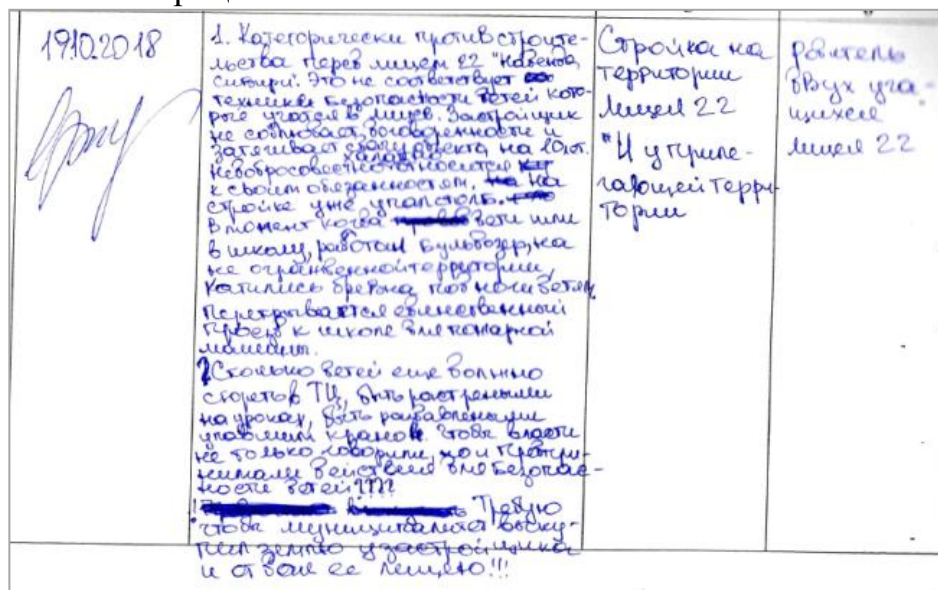 19.10.2018
1. Категорически против строите-
льства перед лицем 22 "Надежда
Сибири". Это не соответствует
техники безопасности детей кото-
рые учатся в лицее. Застройщик
не соблюдает договоренности и
затягивает сдачу объекта на 10 лет.
Недобросовестно халатно относится
к своим обязанностям, на
стройке уже упал столб.
В момент когда дети шли
в школу, работал бульдозер, на
не огражденной территории,
катились бревна под ноги детям.
Перекрывается единственный
проезд к школе для пожарной
машины.
? Сколько детей еще должно
сгореть в ТЦ, быть растреными
на уроках, быть раздавленными
упавшим краном. Чтобы власти
не только говорили, но и предпри-
нимали действия для безопас-
ности детей????
! Требую
чтобы муниципалитет выку-
пил землю у застройщика
и отдал ее лицею!!!
Стройка на
территории
лицея 22
"И у приле-
гающей терри-
тории
родитель
двух уча-
щихся
лицея 22